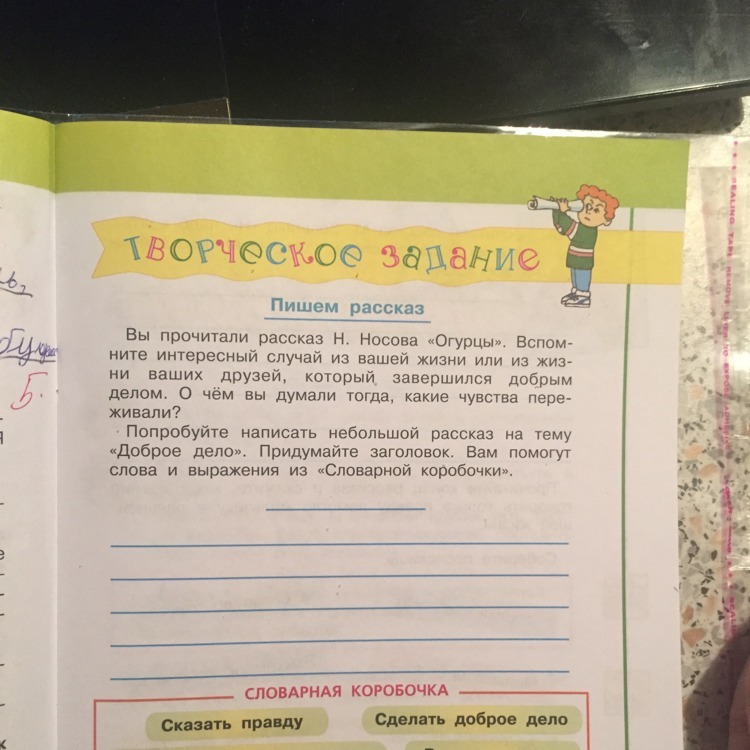 ТВОРЧЕСКОЕ ЗАДАНИЕ
Пишем рассказ
Вы прочитали рассказ Н. Носова «Огурцы». Вспом-
ните интересный случай из вашей жизни или из жиз-
ни ваших друзей, который завершился добрым
делом. О чём вы думали тогда, какие чувства пере-
живали?
Попробуйте написать небольшой рассказ на тему
«Доброе дело». Придумайте заголовок. Вам помогут
слова и выражения из «Словарной коробочки».
СЛОВАРНАЯ КОРОБОЧКА
Сказать правду
Сделать доброе дело